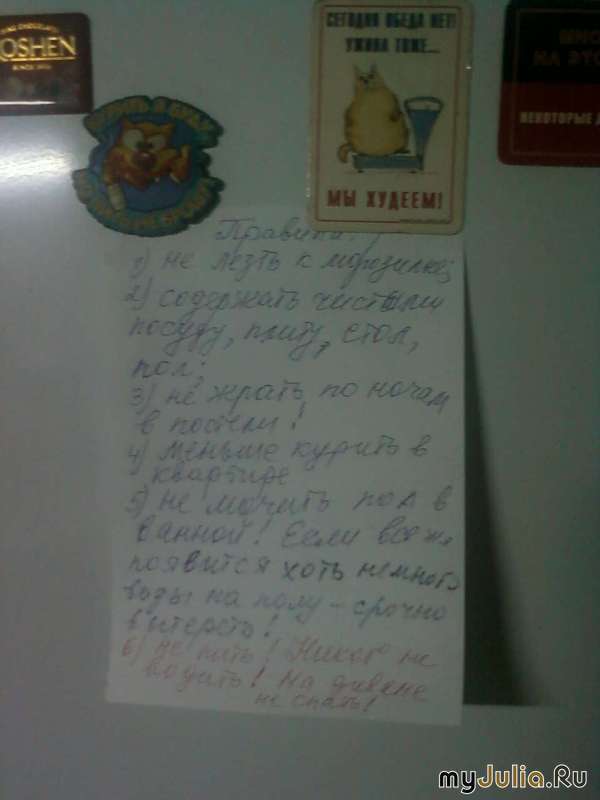 OSHEN
СЕГОДНЯ ОБЕДА НЕТ!
УЖИНА ТОЖЕ...
МЫ ХУДЕЕМ!
НА ЭТО
НЕКОТОРЫЕ
Правила:
1) не лезть к морозилке;
2) содержать чистыми
посуду, плиту, стол,
пол;
3) не жрать по ночам
в постели!
4) меньше курить в
квартире
5) не мочить пол в
ванной! Если все ж
появится хоть немного
воды на полу - срочно
вытереть!
6) Не пить! Никого не
водить! На диване
не спать!
myJulia.Ru